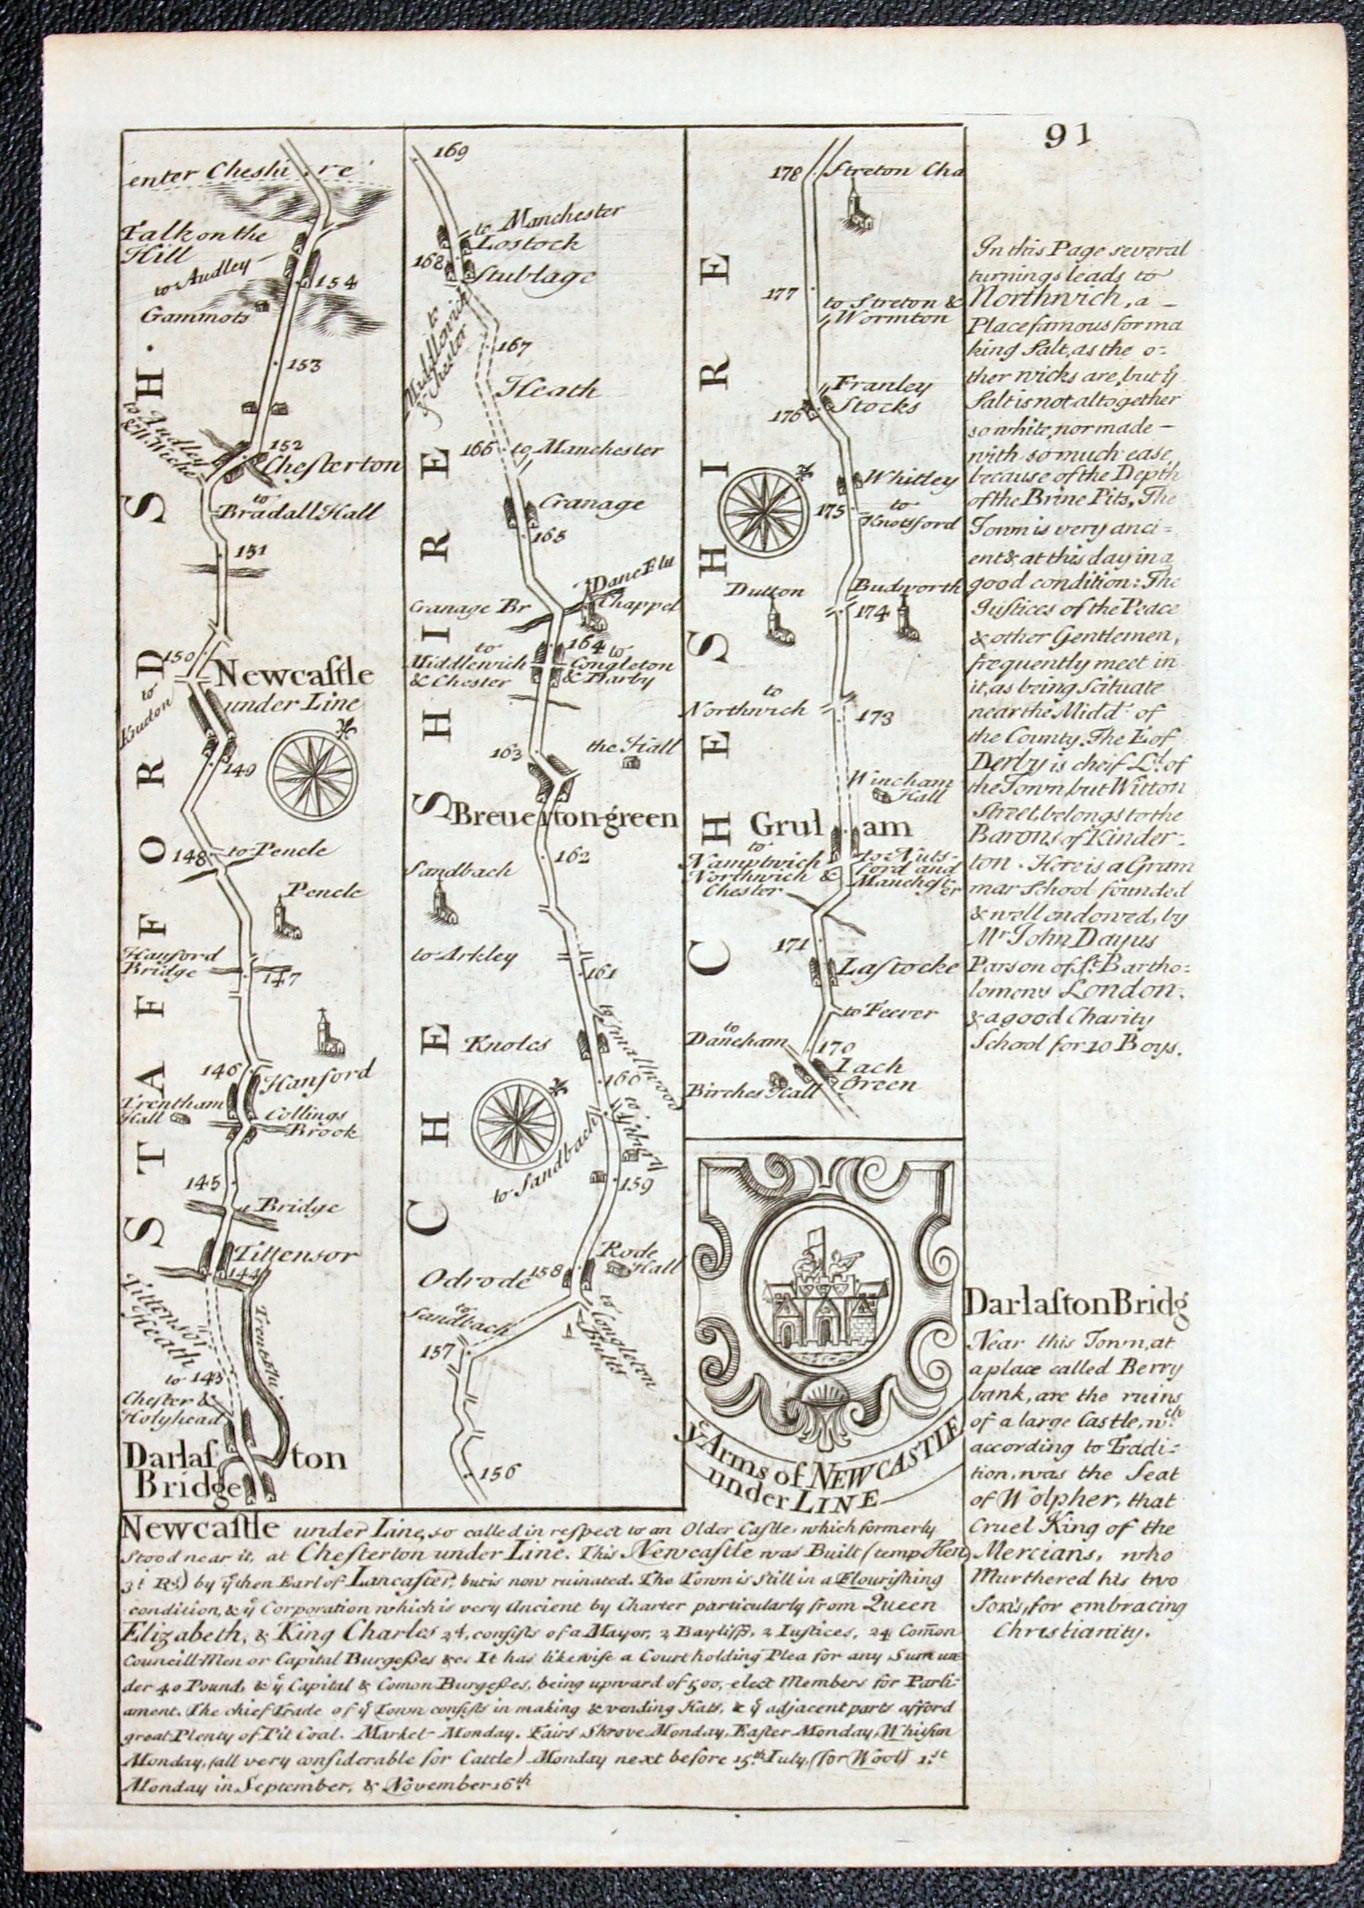 91
enter Cheshire
Talk on the
Hill
to Audley
154
Gammots
153
to Audley
& N. Wiche
152
Chesterton
to
Bradall Hall
151
150
Newcastle
under Line
to
Knuton
149
148
to Pencle
Pencle
Hanford
Bridge
147
146
Hanford
Trentham
Hall
Collings
Brook
145
a Bridge
Tittensor
144
Tittensor
Heath
Trent flu.
to 143
Chester &
Holyhead
Darlaston
Bridge
STAFFORDSH.
169
to Manchester
Lostock
168
Stublage
to
Middlewich
& Chester
167
Heath
166
to Manchester
Cranage
165
Dane Flu
Cranage Br
Chappel
164
to
Middlewich
& Chester
to
Congleton
& Darby
163
the Hall
Breuerton-green
162
Sandbach
to Arkley
161
to Smallwood
Knoles
160
to Sandbach
159
Rode
Hall
Odrode
158
to
Sandbach
to
Congleton
Butts
157
156
CHESHIRE
178
Streton Cha
177
to Streton &
Wormton
Franley
Stocks
176
Whitley
175
to
Knotsford
Dutton
Budworth
174
to
Northwich
173
Wincham
Hall
Grulam
to
Namptwich
Northwich &
Chester
to Nuts-
ford and
Manchester
171
Lastocke
to Feerer
to
Daneham
170
Lach
Green
Birches Hall
CHESHIRE
yͤ Arms of NEWCASTLE
under LINE
In this Page several
turnings leads to
Northwich, a
Place famous for ma
king Salt, as the o-
ther wicks are, but yͤ
Salt is not altogether
so white, nor made
with so much ease,
because of the Depth
of the Brine Pits, The
Town is very anci-
ent & at this day in a
good condition: The
Justices of the Peace
& other Gentlemen,
frequently meet in
it, as being Scituate
near the Midd.ͭ of
the County. The E. of
Derby is cheif Lᵈ. of
the Town, but Witton
Street belongs to the
Barons of Kinder-
ton. Here is a Gram
mar School founded
& well endowed, by
Mͬ John Dayus
Parson of Sͭ. Bartho-
lomews London.
& a good Charity
School for 10 Boys.
Darlaston Bridg
Near this Town, at
a place called Berry
bank, are the ruins
of a large Castle, wᶜʰ.
according to Tradi-
tion, was the Seat
of Wolpher, that
Cruel King of the
Mercians, who
Murthered his two
Sons, for embracing
Christianity.
Newcastle under Line, so called in respect to an Older Castle, which formerly
stood near it, at Chesterton under Line. This Newcastle was Built (temp Hen
3ᵈ Rˢ.) by yͤ then Earl of Lancaster, but is now ruinated. The Town is still in a Flourishing
condition, & yͤ Corporation which is very Ancient by Charter particularly from Queen
Elizabeth, & King Charles 2ᵈ, consists of a Mayor, 2 Bayliffs, 2 Justices, 24 Com̄on
Councill-Men or Capital Burgesses &c. It has likewise a Court holding Plea for any Sum un
der 40 Pound, & yͤ Capital & Comon Burgesses, being upward of 500, elect Members for Parli-
ament. The chief Trade of yͤ Town consists in making & vending Hats, & yͤ adjacent parts afford
great Plenty of Pit Coal. Market Monday. Fairs Shrove Monday, Easter Monday, Whitson
Monday, (all very considerable for Cattle) Monday next before 15.ᵗʰ July, (for Wool) 1.ˢᵗ
Monday in September, & November 16.ᵗʰ